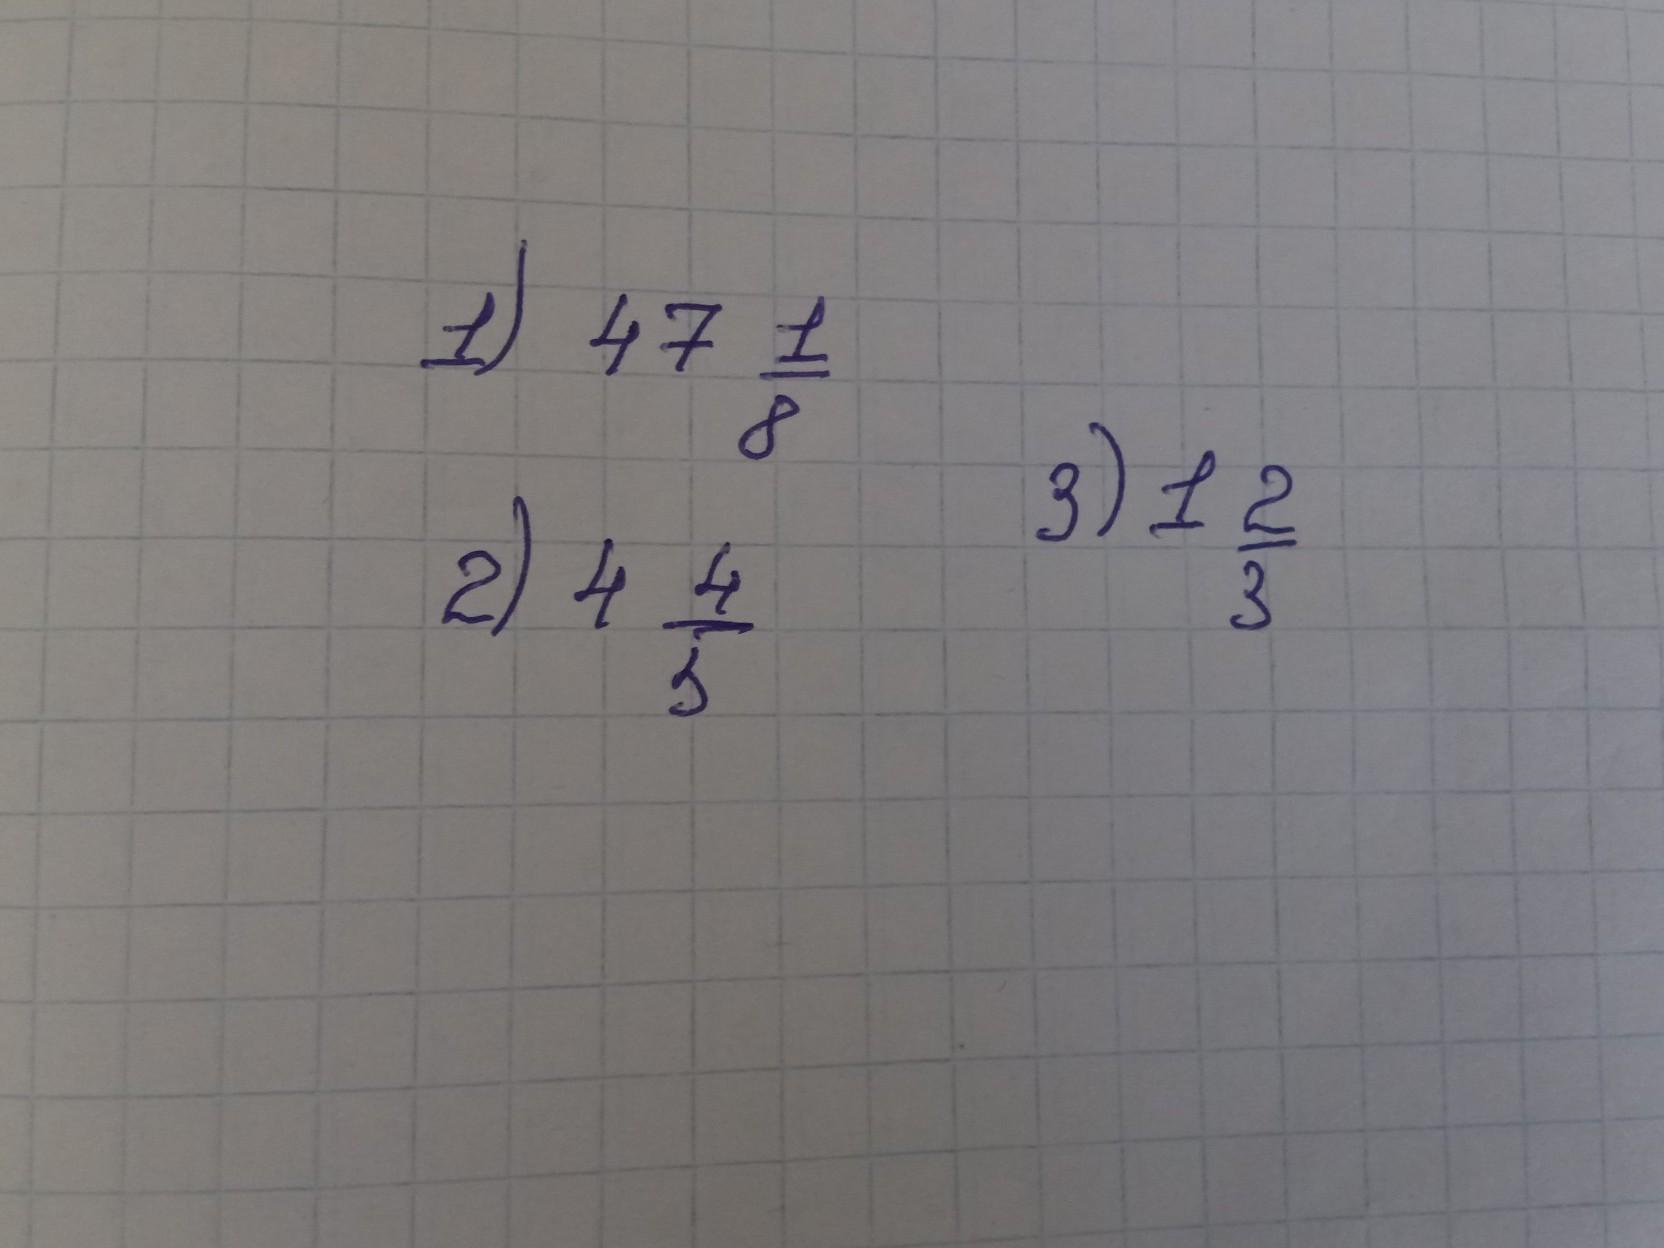 1) 47 1/8
2) 4 4/5
3) 1 2/3